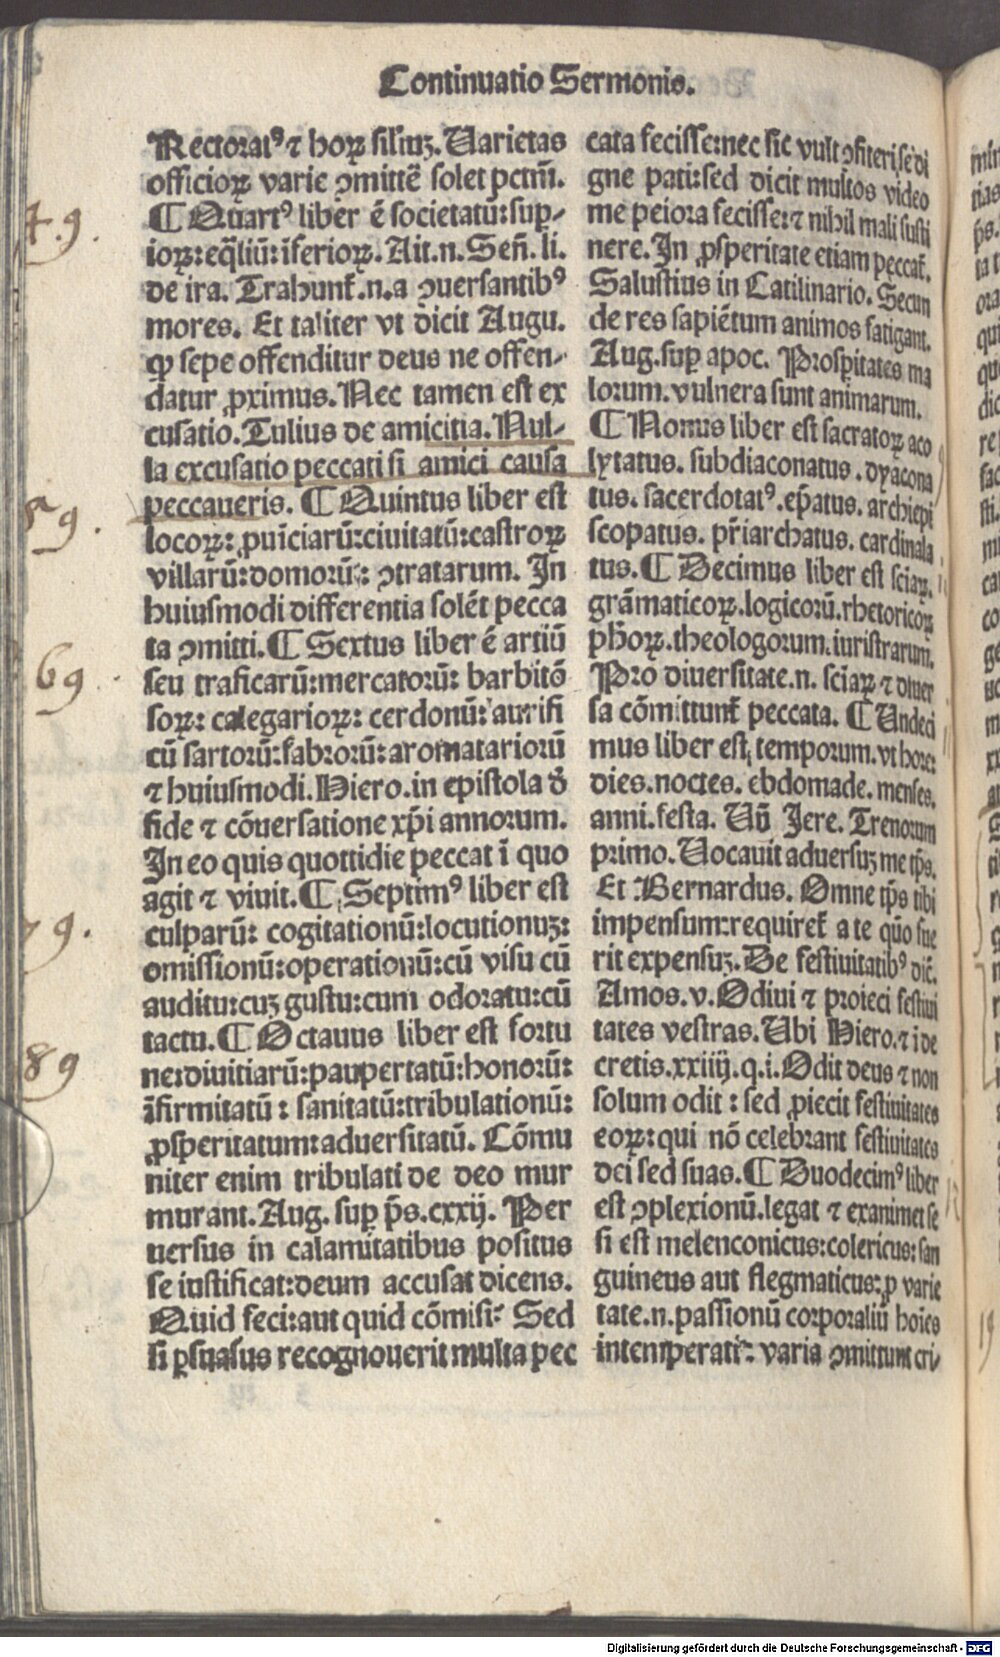 Continuatio Sermonis.
Rectorat⁹ ⁊ hoꝝ siliuꝫ. Uarietas
officioꝝ varie ꝯmittē solet pctm̄.
¶ Quart⁹ liber ē societatū: sup-
ioꝝ: eq̄liū: īferioꝝ. Ait.n. Señ. li.
de ira. Trahunt̄.n.a ꝯuersantib⁹
mores. Et taliter vt dicit Augu.
ꝙ sepe offenditur deus ne offen-
datur ꝓximus. Nec tamen est ex
cusatio. Tulius de amicitia. Nul-
la excusatio peccati si amici causa
peccaueris. ¶ Quintus liber est
locoꝝ: ꝓuīciarū: ciuitatū: castroꝝ
villarū: domorū: ꝯtratarum. In
huiusmodi differentia solēt pecca
ta ꝯmitti. ¶ Sextus liber ē artiū
seu traficarū: mercatorū: barbitō
soꝝ: calegarioꝝ: cerdonū: aurifi
cū sartorū: fabrorū: aromatariorū
⁊ huiusmodi. Hiero. in epistola d̄
fide ⁊ cōuersatione xp̄i annorum.
In eo quis quottidie peccat ī quo
agit ⁊ viuit. ¶ Septim⁹ liber est
culparū: cogitationū: locutionuꝫ:
omissionū: operationū: cū visu cū
auditu: cuꝫ gustu: cum odoratu: cū
tactu. ¶ Octauus liber est fortu
ne: diuitiarū: paupertatū: honorū:
īfirmitatū: sanitatū: tribulationū:
ꝓsperitatum: aduersitatū. Cōmu
niter enim tribulati de deo mur
murant. Aug. suꝑ ps̄. cxxij. Per
uersus in calamitatibus positus
se iustificat: deum accusat dicens.
Quid feci: aut quid cōmisi? Sed
si ꝑsuasus recognouerit multa pec
cata fecisse: nec sic vult ꝯfiteri se di
gne pati: sed dicit multos video
me peiora fecisse: ⁊ nihil mali susti
nere. In ꝓsperitate etiam peccat̄.
Salustius in Catilinario. Secun
de res sapiētum animos fatigant.
Aug. suꝑ apoc. Prosꝑitates ma
lorum. vulnera sunt animarum.
¶ Nonus liber est sacratoꝝ aco
lytatus. subdiaconatus. dyacona
tus. sacerdotat⁹. ep̄atus. archiepi
scopatus. pr̄iarchatus. cardinala
tus. ¶ Decimus liber est sciaꝝ.
grāmaticoꝝ. logicorū. rhetoricoꝝ
ph̄oꝝ. theologorum. iuristrarum.
Pro diuersitate.n. sciaꝝ ⁊ diuer
sa cōmittunt̄ peccata. ¶ Undeci
mus liber est temporum. vt hore:
dies. noctes. ebdomade. menses.
anni. festa. Uñ Jere. Trenorum
primo. Uocauit aduersuꝫ me tp̄s.
Et Bernardus. Omne tp̄s tibi
impensum: requiret̄ a te quō fue
rit expensuꝫ. De festiuitatib⁹ dic̄.
Amos. v. Odiui ⁊ proieci festiui
tates vestras. Ubi Hiero. ⁊ i de
cretis. xxiiij. q. i. Odit deus ⁊ non
solum odit: sed ꝓiecit festiuitates
eoꝝ: qui nō celebrant festiuitates
dei sed suas. ¶ Duodecim⁹ liber
est ꝯplexionū. legat ⁊ examinet se
si est melenconicus: colericus: san
guineus aut flegmaticus: ꝓ varie
tate.n. passionū corporaliū hoīes
intemperati: varia ꝯmittunt cri/
4.9.
59.
69
79.
89
Digitalisierung gefördert durch die Deutsche Forschungsgemeinschaft - DFG